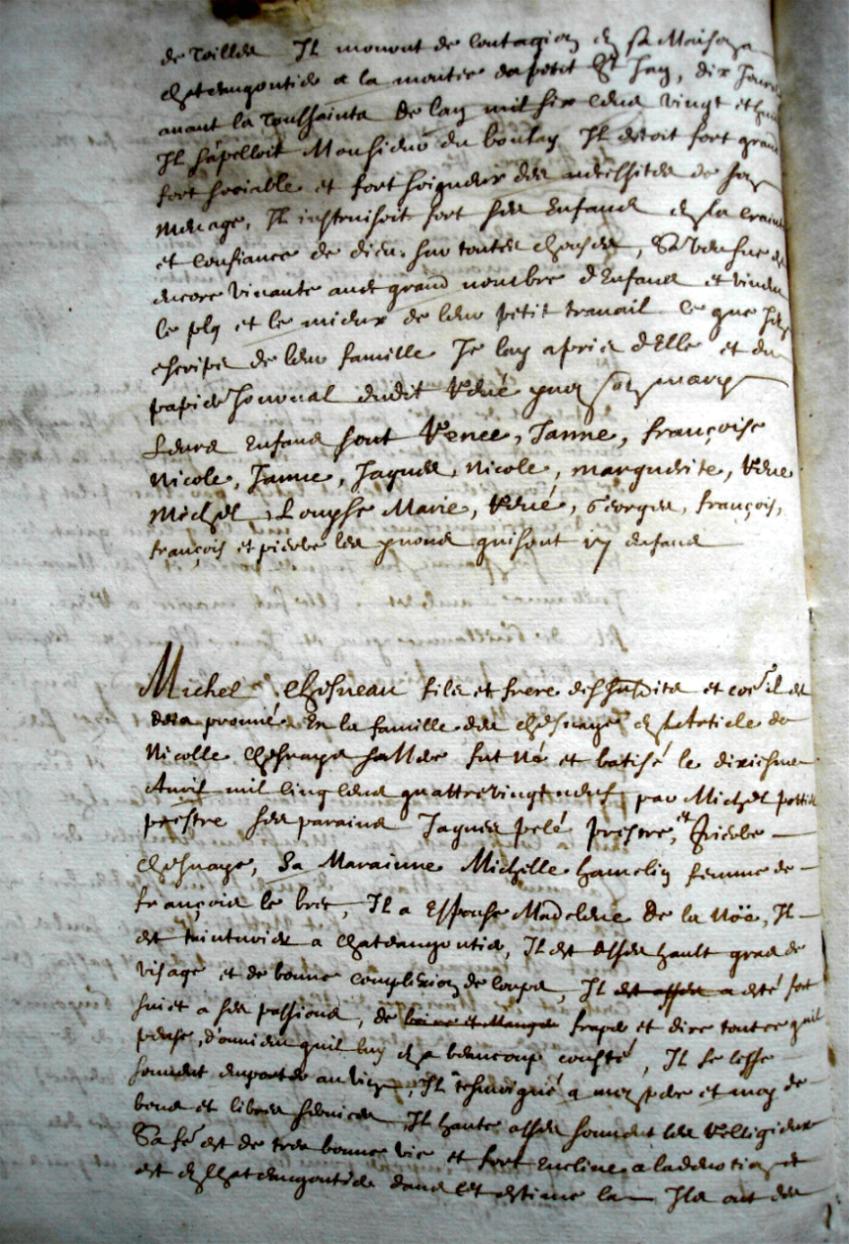 de tailles Il mourut de contagion en sa Maison a
chateaugontier a la montée du petit St Jan, dix Jours
avant la Toussaints De lan mil six cens vingt et
Il sapelloit Monsieur du boulay Il estoit fort grand
fort sociable et fort soigneux des necessités de son
menage, Il instruisoit fort ses Enfans en la crainte
et confiance de dieu sur toutes choses, Sa vefue est
encore vivante avec grand nombre d'Enfans et vivent
le plus et le mieux de leur petit travail Ce que Jay
escript de leur famille Je lay apris d'Elle et du
papier Journal dudit René son mary
Leurs Enfans sont Renee, Janne, françoise
Nicole, Janne, Jaques, Nicole, marguerite, Rene
Michel, Louyse Marie, René, Georges, françois,
françois et pierre les quisont enfans
Michel Chesneau fils et frere des susdits et
desia en la famille des chesnayes en l'Article de
Nicolle Chesnaye sa Mere fut Né et batisé le dixiesme
Avril mil cinq cens quattrevingt neuf par Michel
prestre ses parains Jaques pelé prestre, et pierre
Chesnaye, Sa Marainne Michelle hamelin femme de
françois le bris, Il a Espousé Madelene De la Noë, Il
est teinturier a Chateaugontier, Il est asses hault gras de
visage et de bonne complexion de corps, Il est asses a esté fort
suiet a ses passions, de fraper et dire tout ce quil
pense, d'autant quil luy en a beaucoup cousté, Il se lesse
souvent emporter au vin, Il tesmoigné a mon pere et moy de
bons et libres services Il hante asses souvent les Religieux
Sa fe est de tres bonne vie et fort encline a la devotion et
est en Chateaugontier dans cet estime la Ils ont des